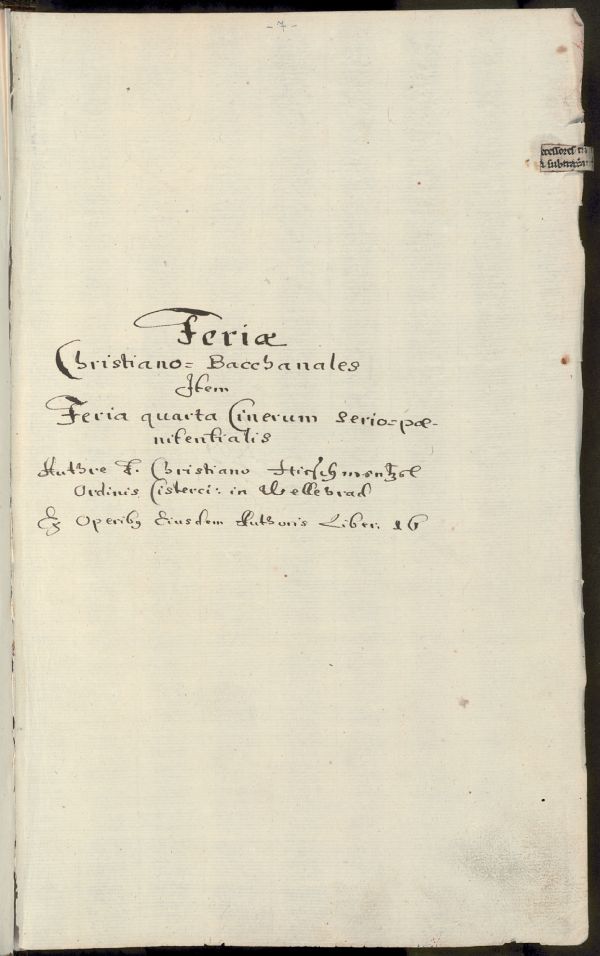 - 7 -
Feriæ
Christiano= Bacchanales
Item
Feria quarta Cinerum serio=pœ-
nitentialis
Authre F. Christiano Hirschmentzel
Ordinis Cisterci: in Wellehrad
Ex Operibꝫ Eiusdem Authoris Liber. 16